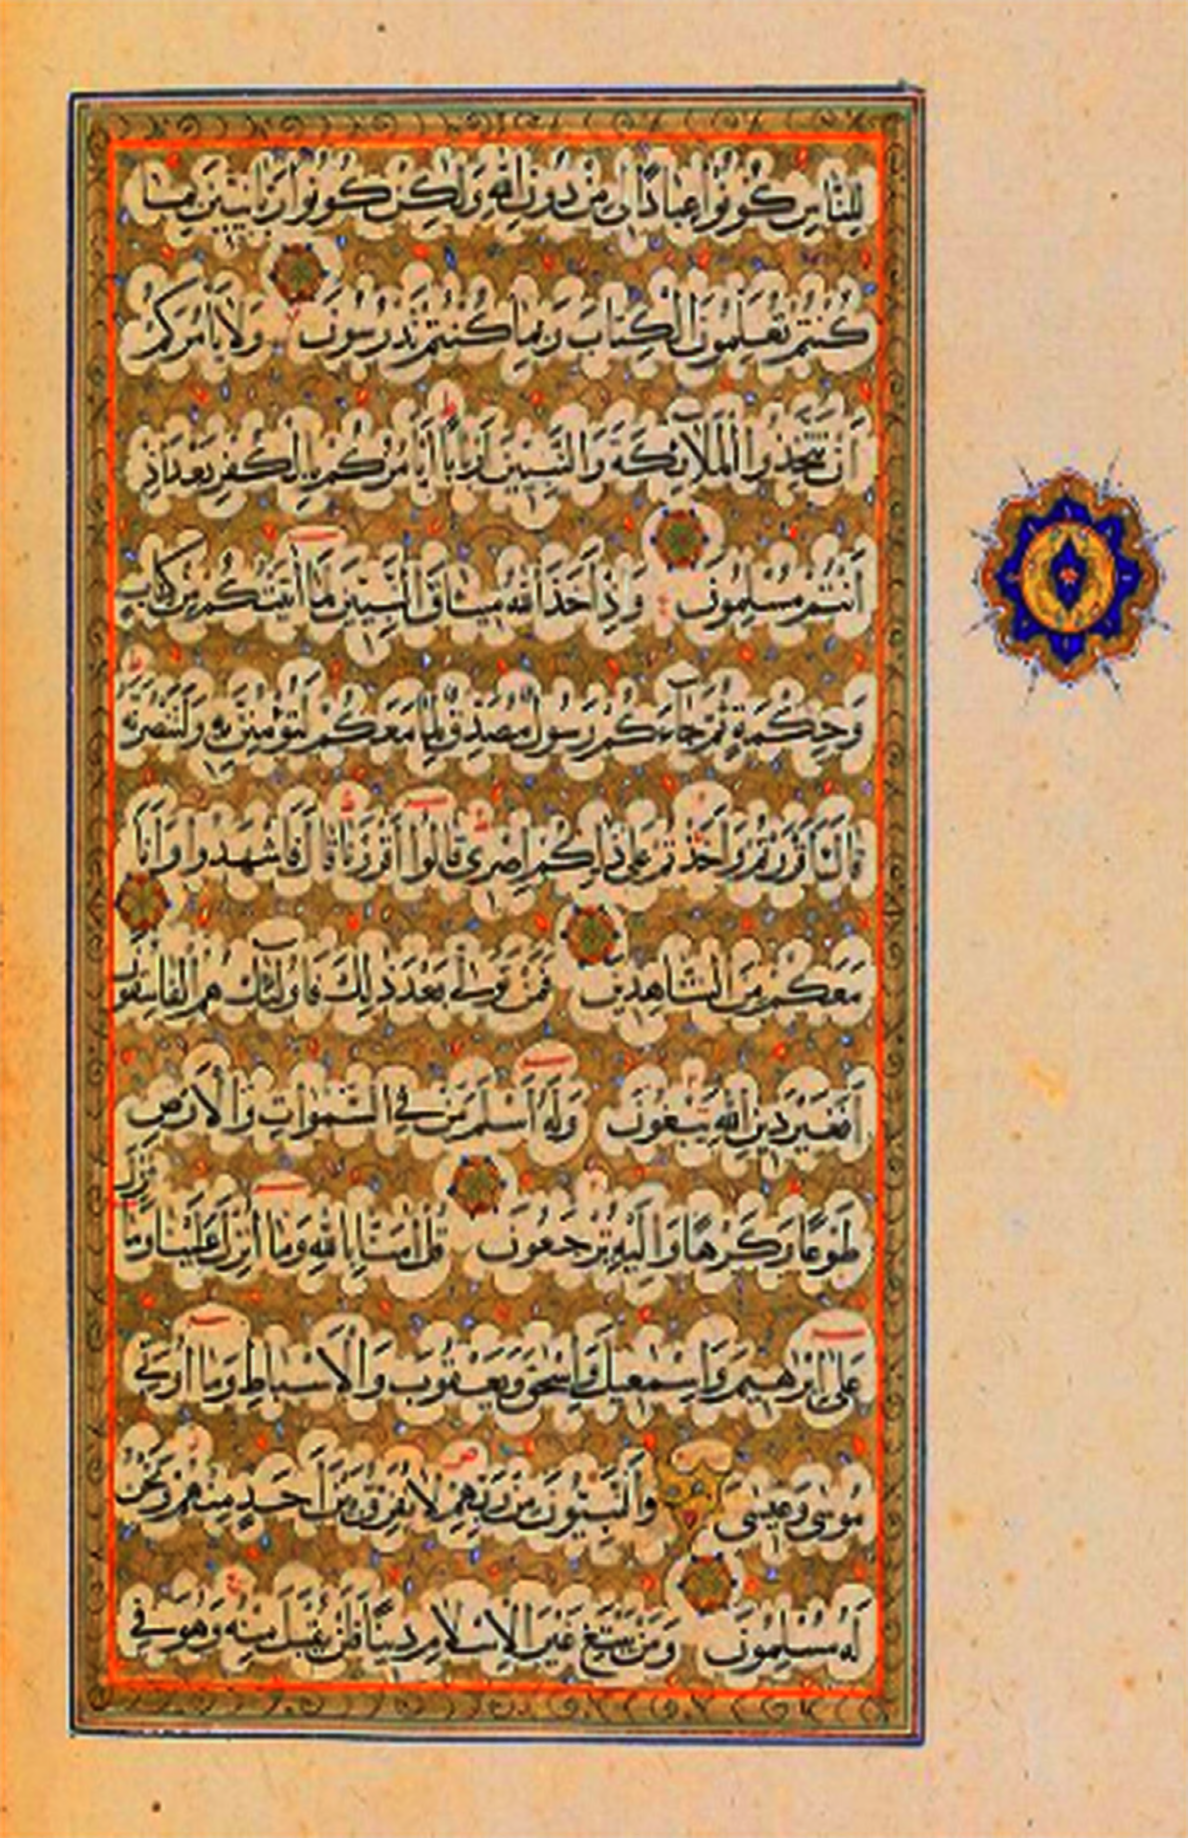 لِلنَّاسِ كُونُوا عِبَادًا لِي مِنْ دُونِ اللهِ وَلَكِنْ كُونُوا رَبَّانِيِّينَ بِمَا
كُنْتُمْ تُعَلِّمُونَ الْكِتَابَ وَبِمَا كُنْتُمْ تَدْرُسُونَ وَلَا يَأْمُرَكُمْ
أَنْ تَتَّخِذُوا الْمَلَائِكَةَ وَالنَّبِيِّينَ أَرْبَابًا أَيَأْمُرُكُمْ بِالْكُفْرِ بَعْدَ إِذْ
أَنْتُمْ مُسْلِمُونَ وَإِذْ أَخَذَ اللهُ مِيثَاقَ النَّبِيِّينَ لَمَا آتَيْتُكُمْ مِنْ كِتَابٍ
وَحِكْمَةٍ ثُمَّ جَاءَكُمْ رَسُولٌ مُصَدِّقٌ لِمَا مَعَكُمْ لَتُؤْمِنُنَّ بِهِ وَلَتَنْصُرُنَّهُ
قَالَ أَأَقْرَرْتُمْ وَأَخَذْتُمْ عَلَى ذَلِكُمْ إِصْرِي قَالُوا أَقْرَرْنَا قَالَ فَاشْهَدُوا وَأَنَا
مَعَكُمْ مِنَ الشَّاهِدِينَ فَمَنْ تَوَلَّى بَعْدَ ذَلِكَ فَأُولَئِكَ هُمُ الْفَاسِقُونَ
أَفَغَيْرَ دِينِ اللهِ يَبْغُونَ وَلَهُ أَسْلَمَ مَنْ فِي السَّمٰوَاتِ وَالْأَرْضِ
طَوْعًا وَكَرْهًا وَإِلَيْهِ تُرْجَعُونَ قُلْ آمَنَّا بِاللهِ وَمَا أُنْزِلَ عَلَيْنَا وَمَا أُنْزِلَ
عَلَى إِبْرٰهِيمَ وَإِسْمٰعِيلَ وَإِسْحٰقَ وَيَعْقُوبَ وَالْأَسْبَاطِ وَمَا أُوتِيَ
مُوسَى وَعِيسَى وَالنَّبِيُّونَ مِنْ رَبِّهِمْ لَا نُفَرِّقُ بَيْنَ أَحَدٍ مِنْهُمْ وَنَحْنُ
لَهُ مُسْلِمُونَ وَمَنْ يَبْتَغِ غَيْرَ الْإِسْلَامِ دِينًا فَلَنْ يُقْبَلَ مِنْهُ وَهُوَ فِي